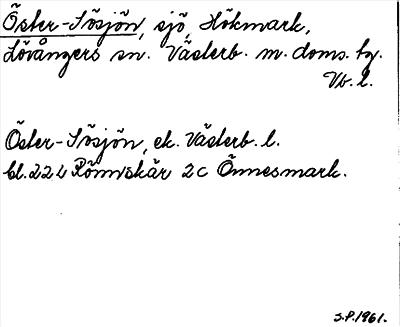 Öster-Sösjön, sjö, Hökmark,
Lövångers sn. Västerb. m. doms. tg.
Vb. l.
Öster-Sösjön, ek. Västerb. l.
bl. 22 L Rönnskär 2c Önnesmark.
S.P. 1961.